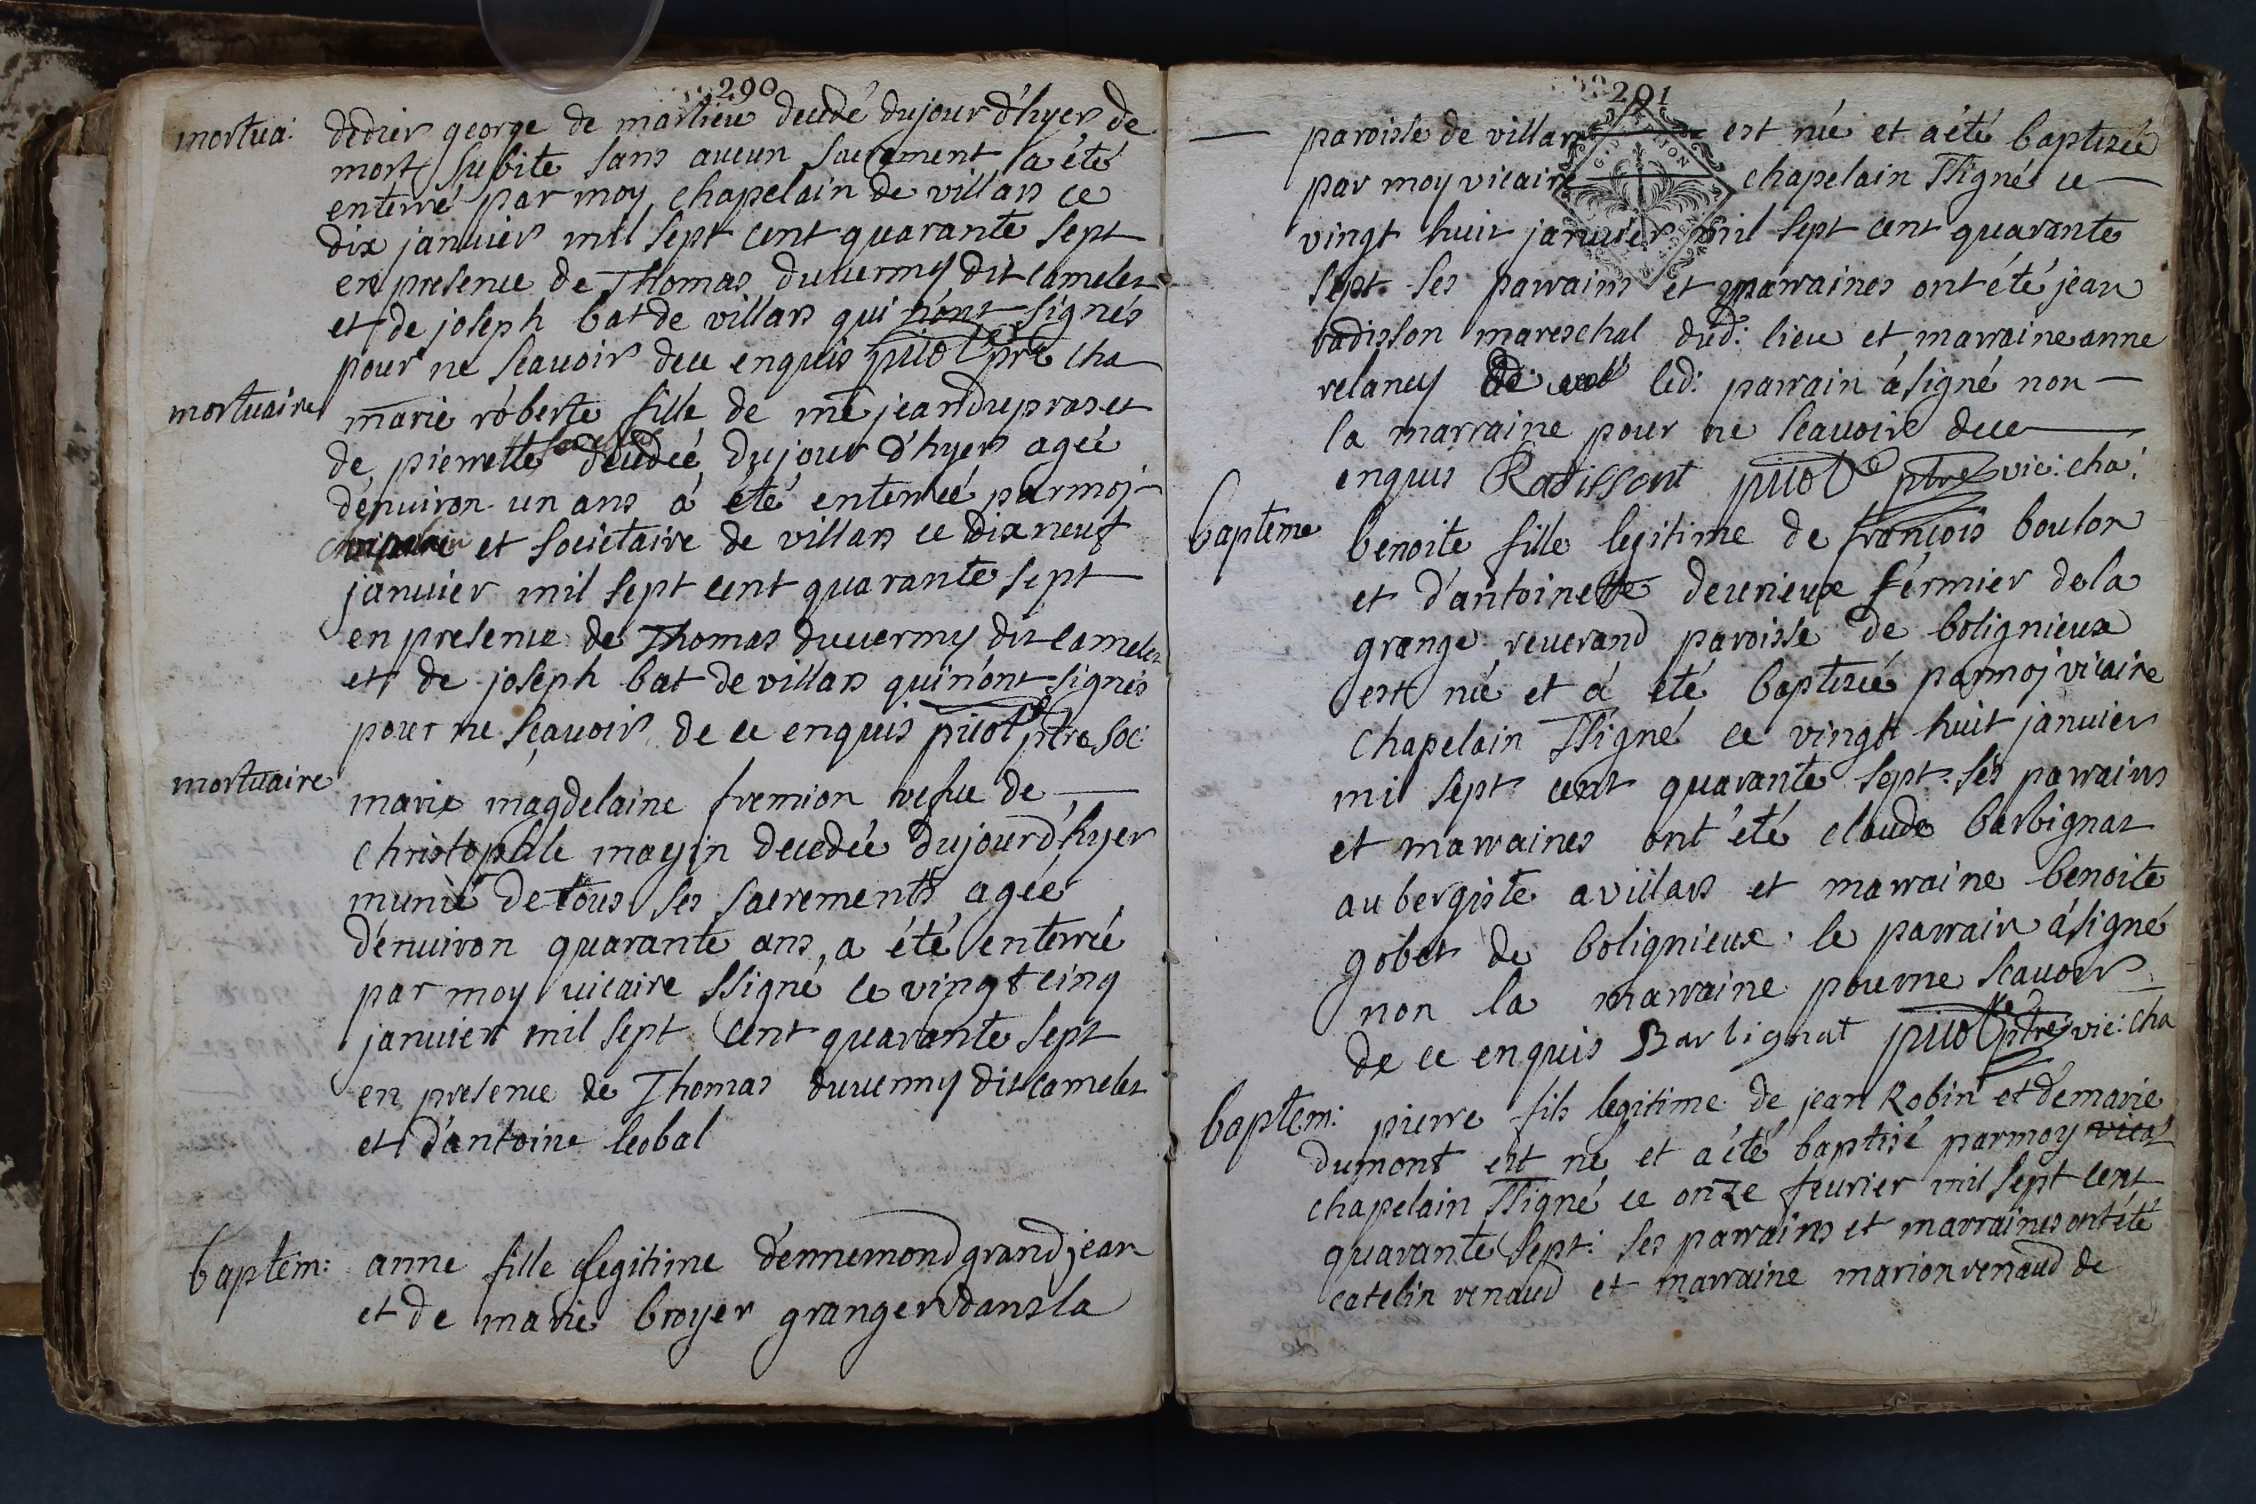 290
mortua: dedier george de marlieu decedé du jour d'hyer de
mort subite sans aucun sacrement a été
enterré par moy chapelain de villars ce
dix janvier mil sept cent quarante sept
en presence de Thomas duvermy dit camelet
et de joseph bat de villars qui n'ont signés
pour ne scavoir de ce enquis pitiot ptre cha
mortuaire marie roberte fille de me jean dupras et
de pierrette decedeé du jour d'hyer ageé
d'environ un ans á été enterreé par moj
et societaire de villars ce dix neuf
janvier mil sept cent quarante sept
en presence de Thomas duvermy dit camelet
et de joseph bat de villars qui n'ont signés
pour ne sçavoir de ce enquis pitiot ptre soc:
mortuaire marie magdelaine fremion vefue de
christophle mayin decedeé du jour d'hyer
munie de tous ses sacrements ageé
d'environ quarante ans, a été enterreé
par moy vicaire ssigné ce vingt cinq
janvier mil sept cent quarante sept
en presence de Thomas duvermy dit camelet
et d'antoine leobal
baptem: anne fille legitime d'ennemond grandjean
et de marie broyer granger dans la
291
paroisse de villars est neé et a été baptiseé
par moy vicaire chapelain ssigné ce
vingt huit janvier mil sept cent quarante
sept. ses parrains et marraines ont été jean
radisson mareschal dud: lieu et marraine anne
velancy led: parrain á signé non
la marraine pour ne scavoire de ce
enquis Radissont pitiot ptre vic: cha:
bapteme benoite fille legitime de françois boulon
et d'antoinette devrieux fermier de la
grange reverand paroisse de bolignieux
est neé et á été baptiseé par moj vicaire
chapelain ssigné ce vingt huit janvier
mil sept cent quarante sept. ses parrains
et marraines ont été claude barbignat
aubergiste a villars et marraine benoite
gobet de bolignieux. le parrain á signé
non la marraine pour ne scavoir
de ce enquis Barbignat pitiot ptre vic: cha
baptem: pierre fils legitime de jean Robin et de marie
dumont est né et a été baptisé par moy vicai
chapelain ssigné ce onze fevrier mil sept cent
quarante sept: ses parrains et marraines ont été
catelin renaud et marraine marion renaud de